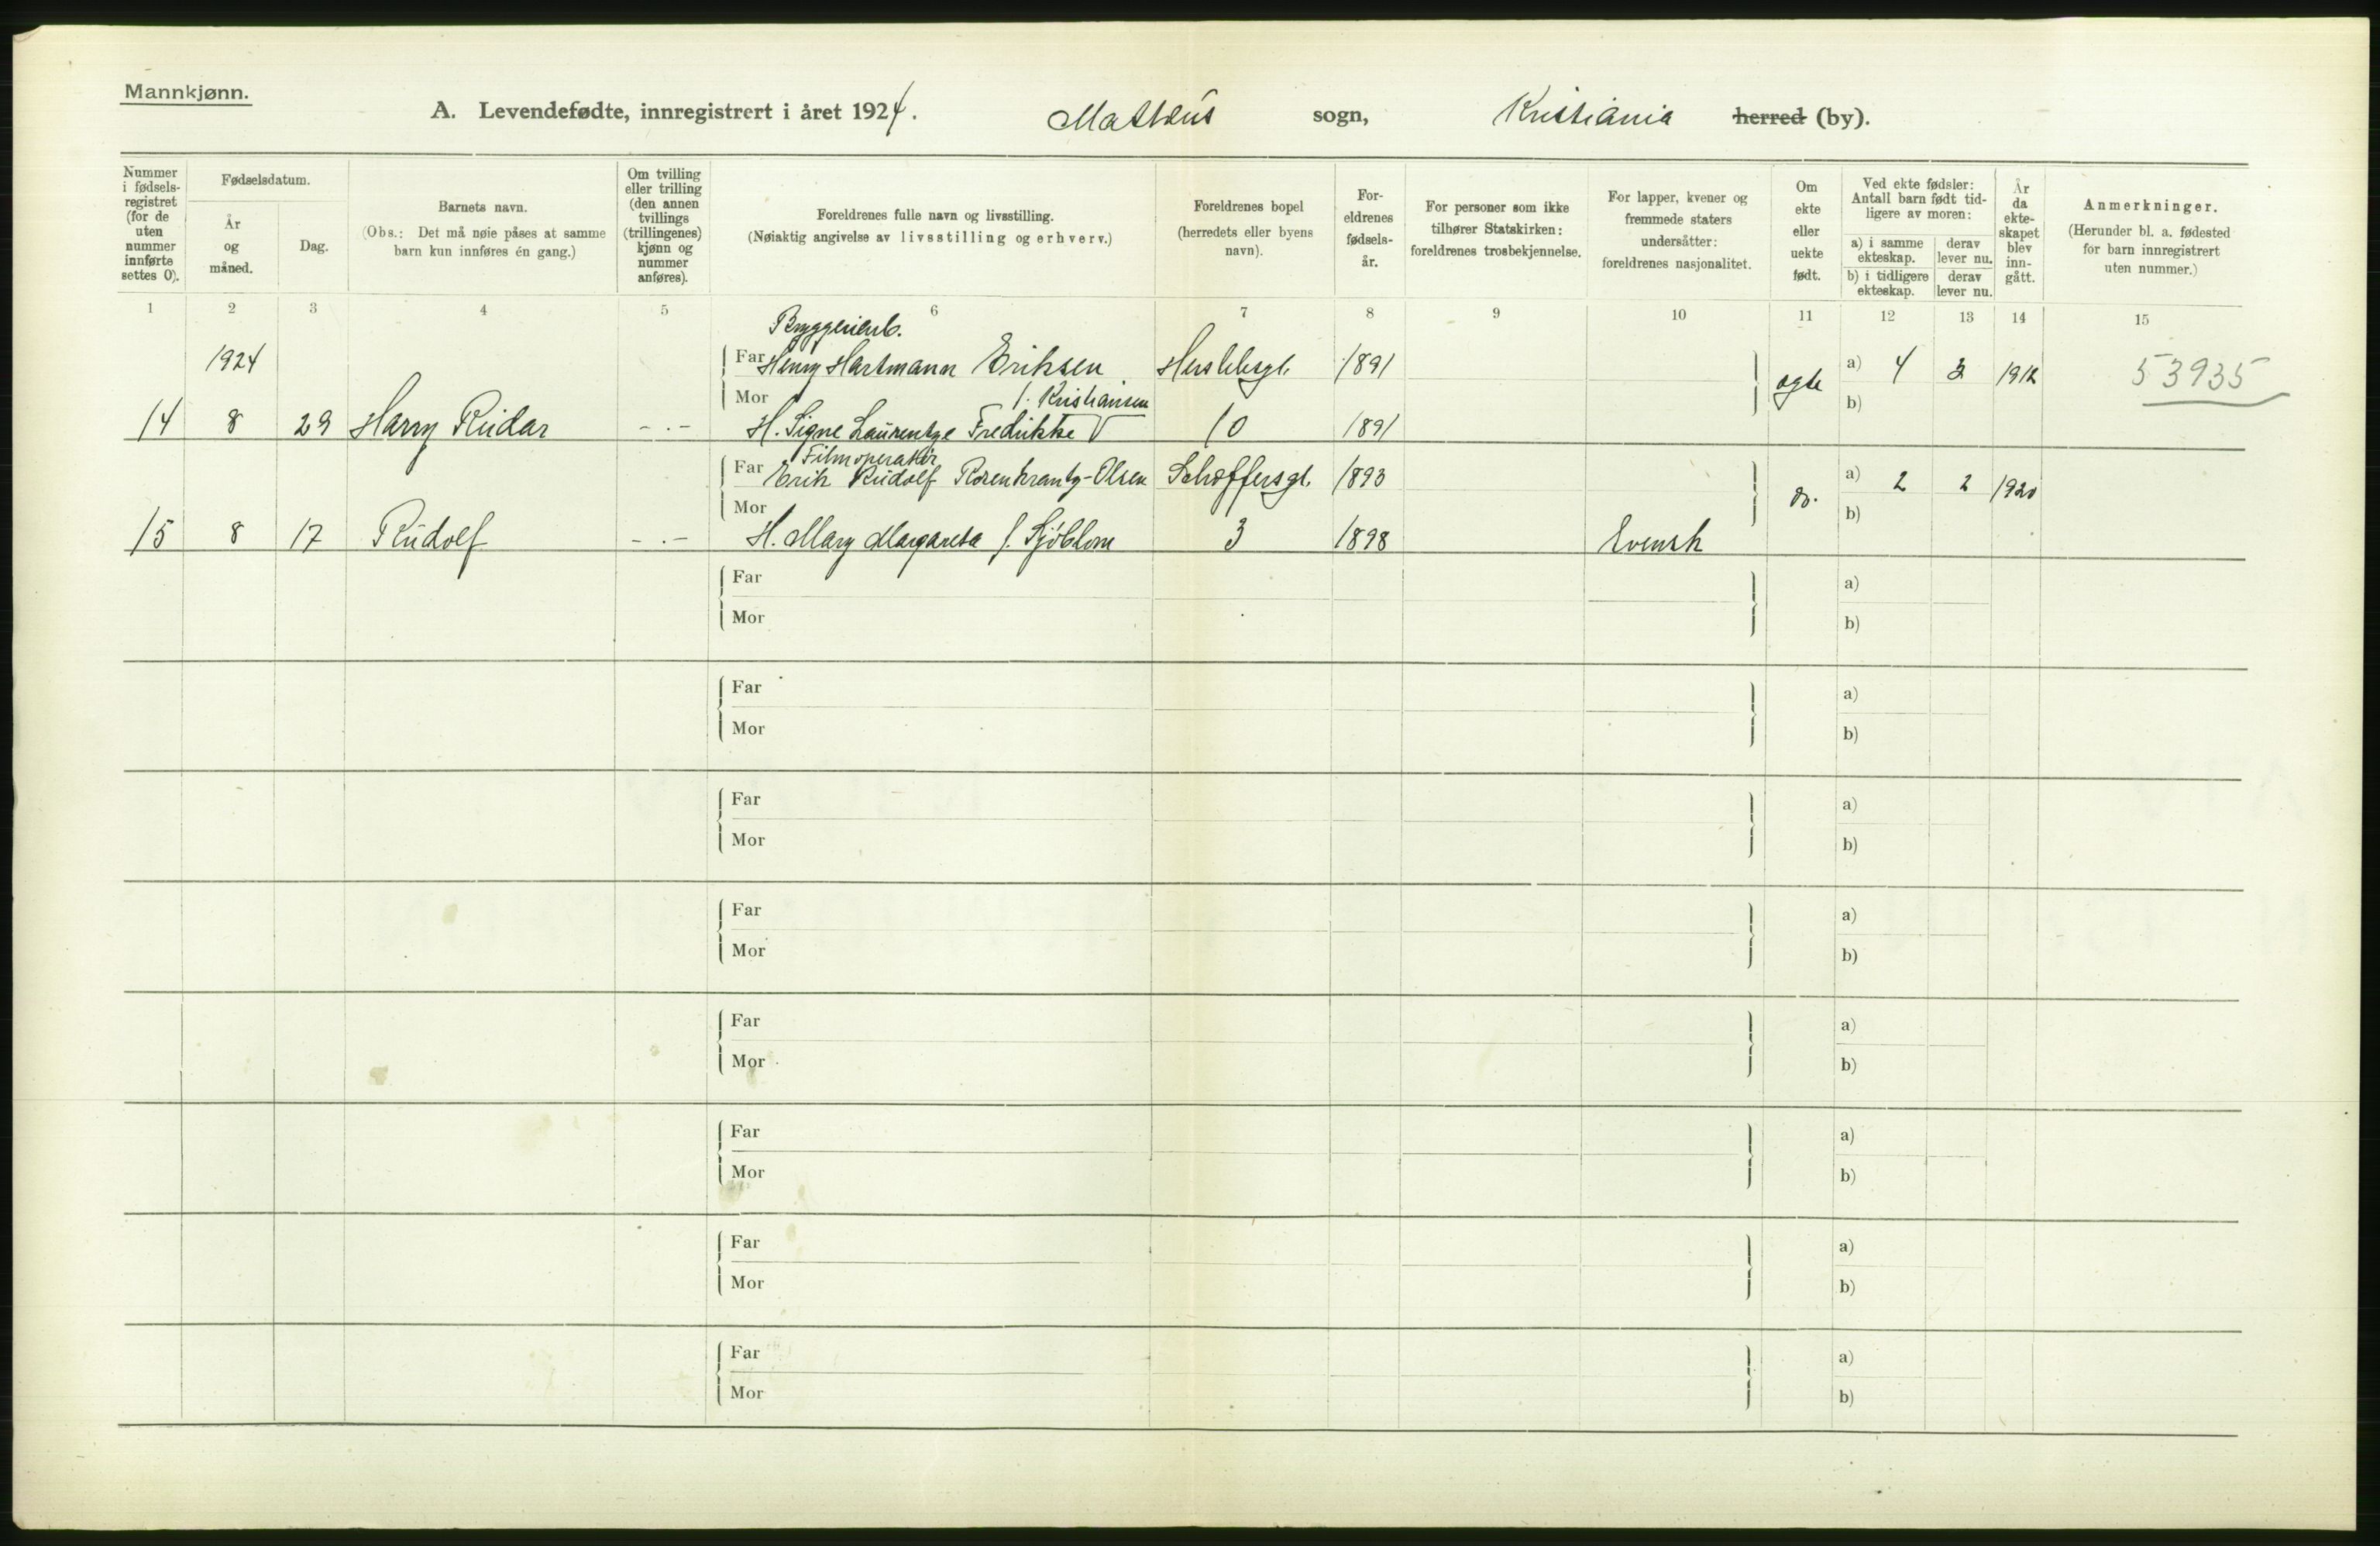 Mannkjønn.
A. Levendefødte, innregistrert i året 1924. Mathæus sogn, Kristiania herred (by).
Nummer i fødsels-registret (for de uten nummer innførte settes 0).
Fødselsdatum.
År og måned.
Dag.
Barnets navn.
(Obs.: Det må nøie påses at samme barn kun innføres én gang.)
Om tvilling eller trilling (den annen tvillings (trillingenes) kjønn og nummer anføres).
Foreldrenes fulle navn og livsstilling.
(Nøiaktig angivelse av livsstilling og erhverv.)
Foreldrenes bopel (herredets eller byens navn).
For-eldrenes fødsels-år.
For personer som ikke tilhører Statskirken: foreldrenes trosbekjennelse.
For lapper, kvener og fremmede staters undersåtter: foreldrenes nasjonalitet.
Om ekte eller uekte født.
Ved ekte fødsler: Antall barn født tid-ligere av moren:
a) i samme ekteskap.
derav lever nu.
b) i tidligere ekteskap.
derav lever nu.
År da ekte-skapet blev inn-gått.
Anmerkninger.
(Herunder bl. a. fødested for barn innregistrert uten nummer.)
1 2 3 4 5 6 7 8 9 10 11 12 13 14 15
Bryggeriarb.
1924 Far Henry Hartmann Eriksen Herslebsgt. 1891 ægte a) 4 3 1912 53935
Mor f. Kristiansen b)
14 8 29 Harry Reidar - . - H. Signe Laurentze Fredrikke 10 1891
Filmoperatør
Far Erik Rudolf Rosenkrantz-Olsen Schæffersgt. 1893 do. a) 2 2 1920
Mor b)
15 8 17 Rudolf - . - H. Mary Margareta f. Sjöblom 3 1898 Svensk
Far a)
Mor b)
Far a)
Mor b)
Far a)
Mor b)
Far a)
Mor b)
Far a)
Mor b)
Far a)
Mor b)
Far a)
Mor b)
Far a)
Mor b)